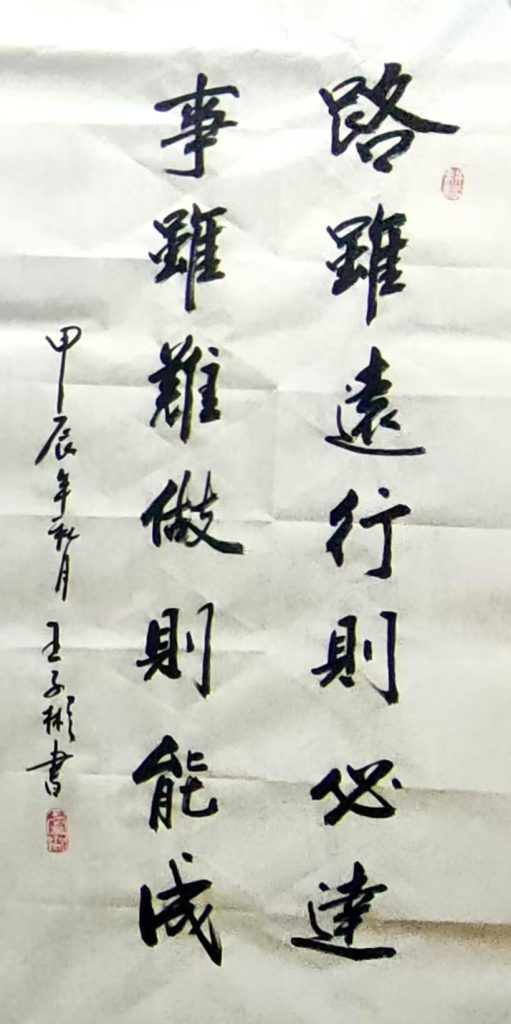 路雖遠行則必達
事雖難做則能成
甲辰年秋月王子彬書